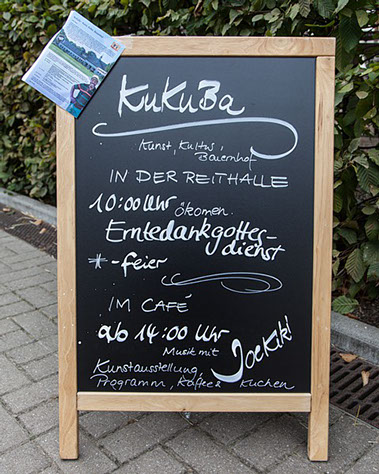 KuKuBa
Kunst, Kultur,
Bauernhof
IN DER REITHALLE
10:00 Uhr ökomen.
Erntedankgottes-
dienst
*-feier
IM CAFÉ
ab 14:00 Uhr
Musik mit
JOEKIK!
Kunstausstellung,
Programm, Kaffee & Kuchen